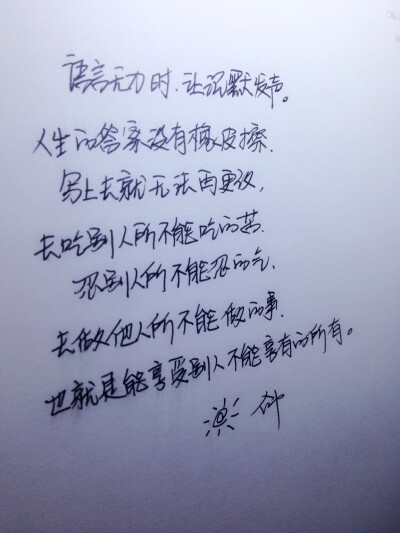 语言无力时.让沉默发声。
人生的答案没有橡皮擦.
写上去就无法再更改,
去吃别人所不能吃的苦.
忍别人所不能忍的气.
去做他人所不能做的事.
也就是能享受别人不能享有的所有。